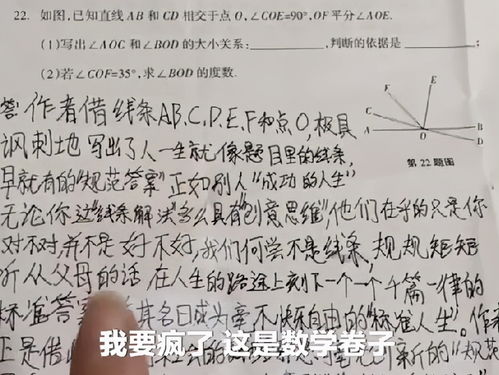 22. 如图,已知直线 AB 和 CD 相交于点 O,∠COE=90°,OF 平分∠AOE.
(1)写出∠AOC 和∠BOD 的大小关系:________,判断的依据是________;
(2)若∠COF=35°,求∠BOD 的度数.
E
F
C
A
O
B
D
第 22 题图
答:作者借线条AB、C、D、E、F和点O,极具
讽刺地写出了人一生就像题目里的线条,
早就有的"规范答案"正如别人"成功的人生"
无论你这"线条解法"多么具有"创意思维",他们在乎的只是你
对不对,并不是好不好,我们何尝不是线条,规规矩矩
听从父母的话,在人生的路途上刻下一个一个千篇一律的
标准答案
其名曰成为幸不快乐自由的"标准人生"。作
正是借
的"规范
我要疯了 这是数学卷子